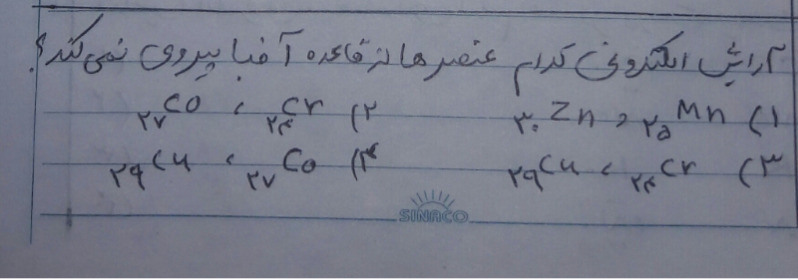 آرایش الکترونی کدام عنصرها از قاعده آفبا پیروی نمی‌کند؟
۱) ₂₅Mn و ₃₀Zn ۲) ₂₄Cr ، ₂₇Co
۳) ₂₄Cr ، ₂₉Cu ۴) ₂₇Co ، ₂₉Cu
SINACO